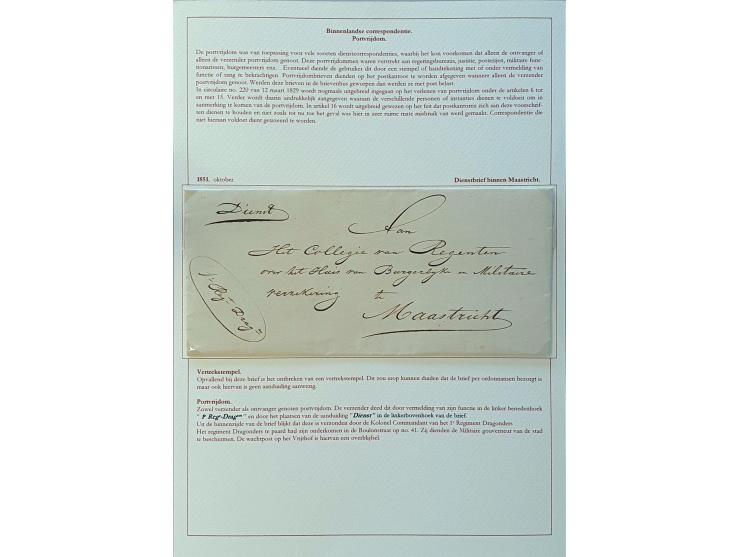 Binnenlandse correspondentie.
Portvrijdom.
De portvrijdom was van toepassing voor vele soorten dienstcorrespondenties, waarbij het kon voorkomen dat alleen de ontvanger of
alleen de verzender portvrijdom genoot. Deze portvrijdommen waren verstrekt aan regeringsbureaus, justitie, posterijen, militaire func-
tionarissen, burgemeesters enz. . Eventueel diende de gebruiker dit door een stempel of handtekening met of onder vermelding van
functie of rang te bekrachtigen. Portvrijdombrieven dienden op het postkantoor te worden afgegeven wanneer alleen de verzender
portvrijdom genoot. Werden deze brieven in de brievenbus geworpen dan werden ze met port belast.
In circulaire no. 220 van 12 maart 1829 wordt nogmaals uitgebreid ingegaan op het verlenen van portvrijdom onder de artikelen 6 tot
en met 15. Verder wordt daarin uitdrukkelijk aangegeven waaraan de verschillende personen of instanties dienen te voldoen om in
aanmerking te komen van de portvrijdom. In artikel 16 wordt uitgebreid gewezen op het feit dat postkantoren zich aan deze voorschrif-
ten dienen te houden en niet zoals tot nu toe het geval was hier in zeer ruime mate misbruik van werd gemaakt. Correspondentie die
niet hieraan voldoet dient getaxeerd te worden.
1851. oktober. Dienstbrief binnen Maastricht.
Dienst
Aan
Het Collegie van Regenten
over het Huis van Burgerlyke en Militaire
verzekering te
Maastricht
1e Regt Dragns
Vertrekstempel.
Opvallend bij deze brief is het ontbreken van een vertrekstempel. Dit zou erop kunnen duiden dat de brief per ordonnansen bezorgt is
maar ook hiervan is geen aanduiding aanwezig.
Portvrijdom.
Zowel verzender als ontvanger genoten portvrijdom. De verzender deed dit door vermelding van zijn functie in de linker benedenhoek
" 1e Regt-Dragns " en door het plaatsen van de aanduiding "Dienst" in de linkerbovenhoek van de brief.
Uit de binnenzijde van de brief blijkt dat deze is verzonden door de Kolonel Commandant van het 1e Regiment Dragonders
Het regiment Dragonders te paard had zijn onderkomen in de Bouillonstraat op no. 41. Zij dienden de Militaire gouverneur van de stad
te beschermen. De wachtpost op het Vrijthof is hiervan een overblijfsel.